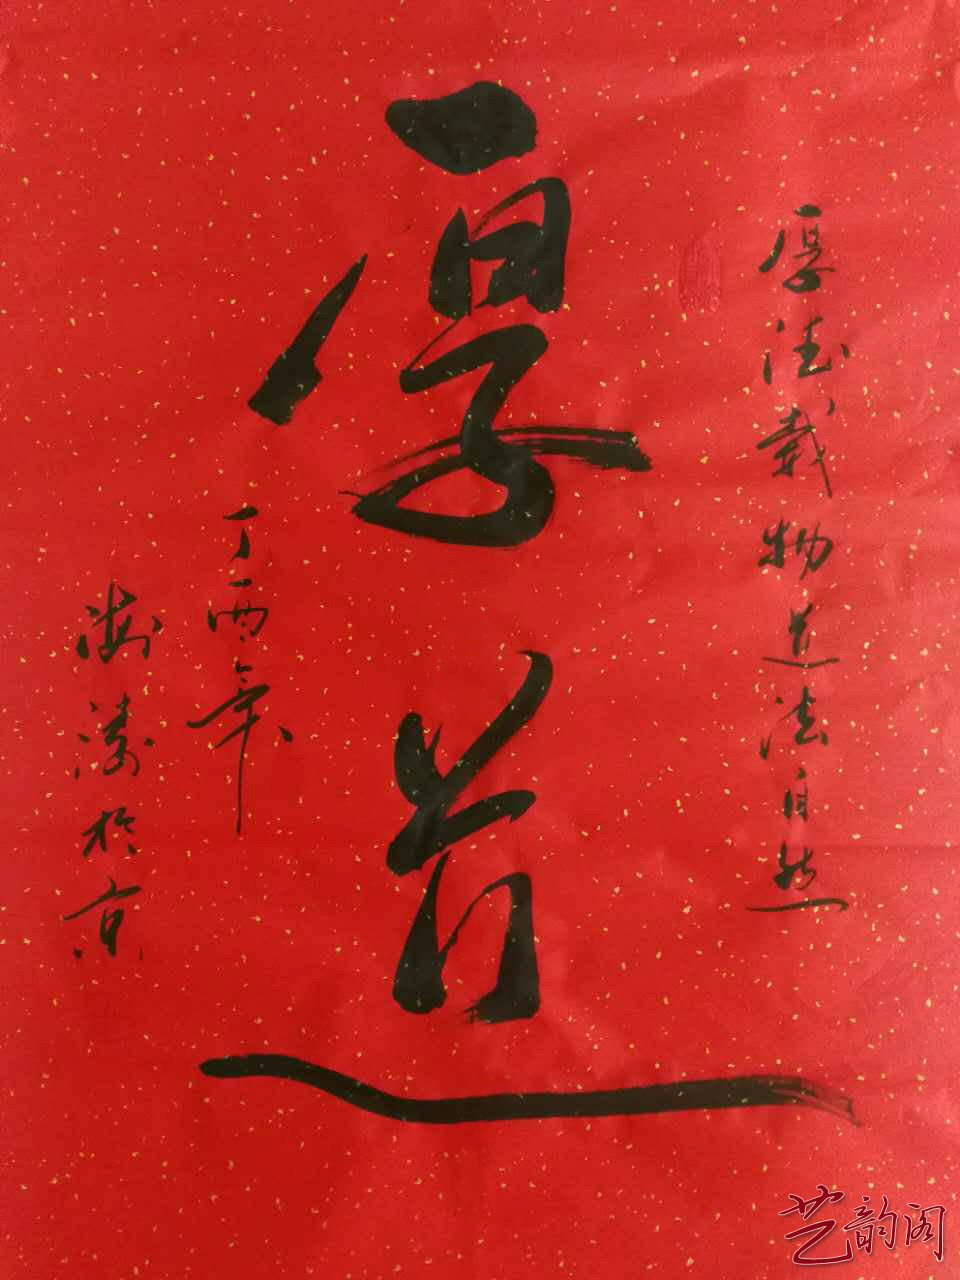 厚德载物道法自然
厚道
丁酉年
海涛於京
艺韵阁